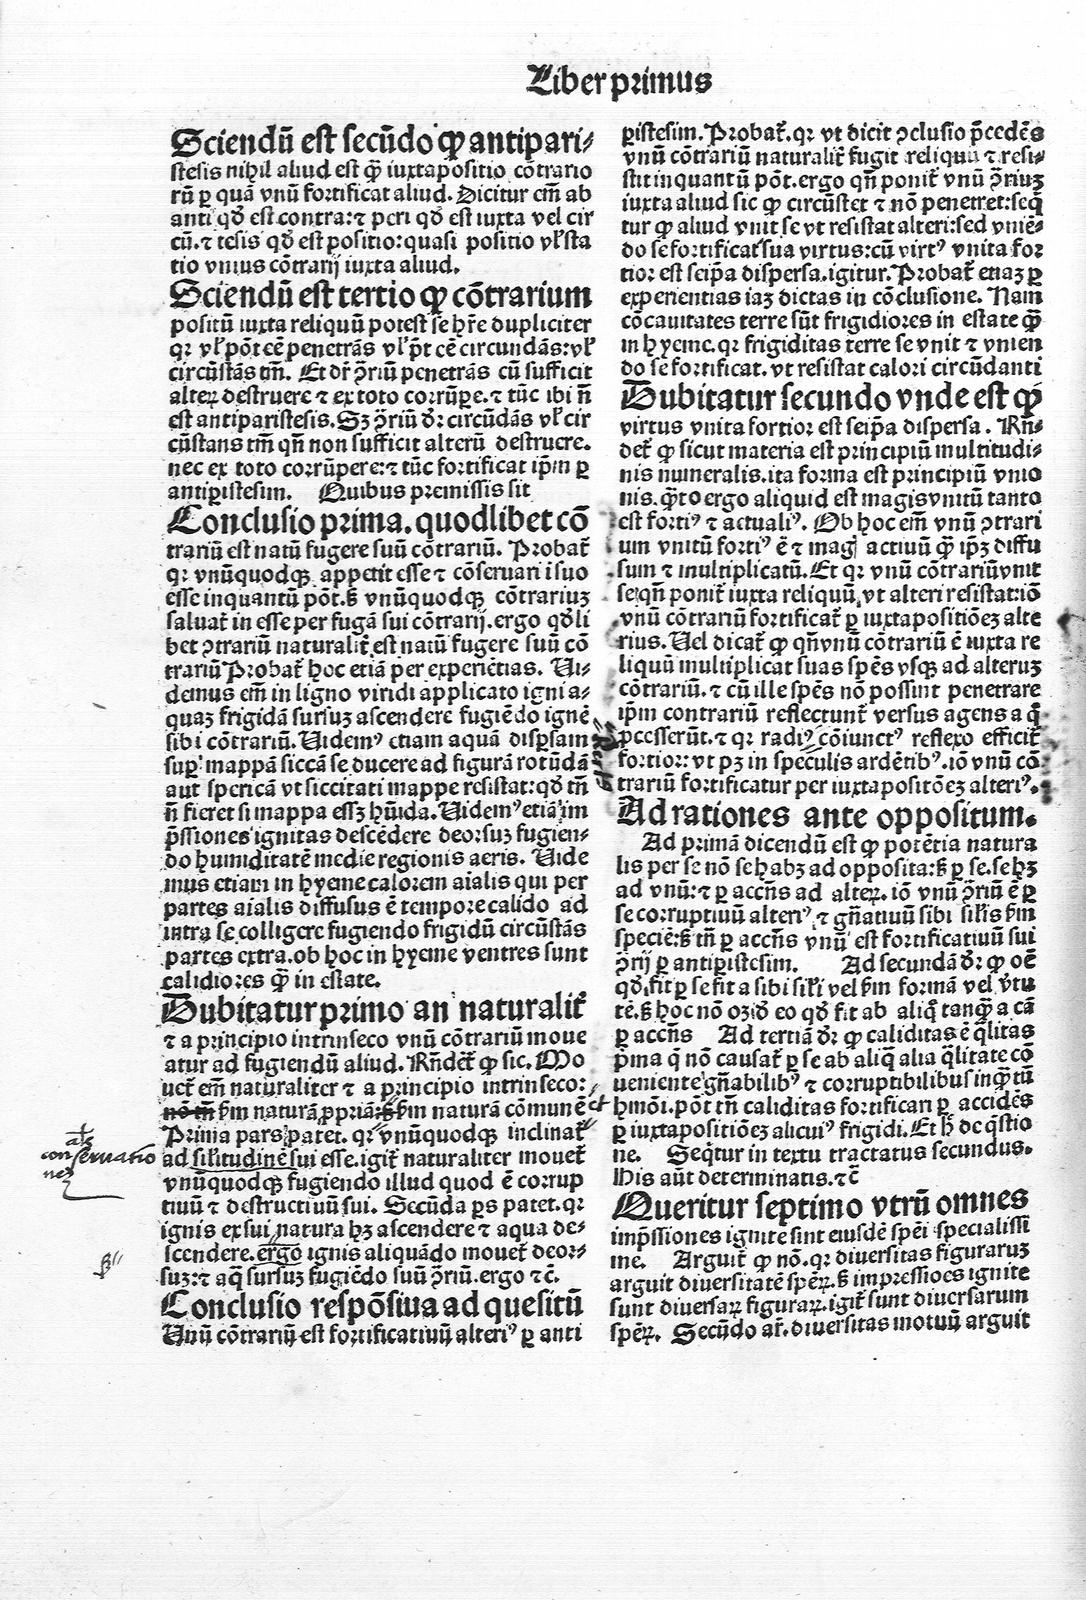 Liber primus
Sciendū est secūdo ꝙ antipari⸗
stesis nihil aliud est ꝙ̄ iuxtapositio cōtrario
rū ꝑ quā vnū fortificat aliud. Dicitur em̄ ab
anti qđ est contra: ⁊ peri qđ est iuxta vel cir
cū. ⁊ tesis qđ est positio: quasi positio vł sta
tio vnius cōtrarij iuxta aliud.
Sciendū est tertio ꝙ cōtrarium
positū iuxta reliquū potest se hr̄e dupliciter
qꝛ vł pōt cē penetrās vł pōt cē circundās: vł
circūstās tm̄. Et dr̄ ꝯ̄riū penetrās cū sufficit
alteꝝ destruere ⁊ ex toto corrūpe. ⁊ tūc ibi n̄
est antiparistesis. Sꝫ ꝯ̄riū dr̄: circūdās vł cir
cūstans tm̄ qn̄ non sufficit alterū destruere.
nec ex toto corrūpere: ⁊ tūc fortificat ip̄m ꝑ
antiꝑistesim. Quibus premissis sit
Conclusio prima. quodlibet cō
trariū est natū fugere suū cōtrariū. Probat̄
qꝛ vnūquodqꝫ appetit esse ⁊ cōseruari i suo
esse inquantū pōt. ꝟ vnūquodqꝫ cōtrariuꝫ
saluat̄ in esse per fugā sui cōtrarij. ergo qđli
bet ꝯtrariū naturalit̄ est natū fugere suū cō
trariū Probat̄ hoc etiā per experiētias. Ui⸗
demus em̄ in ligno viridi applicato igni a⸗
quaꝫ frigidā sursuꝫ ascendere fugiēdo ignē
sibi cōtrariū. Uidemꝰ etiam aquā disꝑsam
suꝑ mappā siccā se ducere ad figurā rotūdā
aut spericā vt siccitati mappe resistat: qđ tn̄
n̄ fieret si mappa essꝫ hūida. Uidemꝰ etiā im
p̄ssiones ignitas descēdere deorsuꝫ fugien⸗
do humiditatē medie regionis aeris. Uide
mus etiam in hyeme calorem aialis qui per
partes aialis diffusus ē tempore calido ad
intra se colligere fugiendo frigidū circūstās
partes extra. ob hoc in hyeme ventres sunt
calidiores ꝙ̄ in estate.
Dubitatur primo an naturalit̄
⁊ a principio intrinseco vnū cōtrariū moue
atur ad fugiendū aliud. Rn̄det̄ ꝙ sic. Mo
uet̄ em̄ naturaliter ⁊ a principio intrinseco:
nō tn̄ ẜm naturā ꝓpriā: ꝟ ẜm naturā cōmunē et
Prima pars patet. qꝛ vnūquodqꝫ inclinat̄
ad silitudinē sui esse. igit̄ naturaliter mouet̄
als
conseruatio
nez
vnūquodqꝫ fugiendo illud quod ē corrup
tiuū ⁊ destructiuū sui. Secūda ꝑs patet. qꝛ
ignis ex sui natura hꝫ ascendere ⁊ aqua de⸗
scendere. ergo ignis aliquādo mouet̄ deor⸗
suꝫ: ⁊ aq̄ sursuꝫ fugiēdo suū ꝯ̄riū. ergo ⁊c̄.
Conclusio respōsiua ad quesitū
Unū cōtrariū est fortificatiuū alteriꝰ ꝑ anti
ꝑistesim. Probat̄. qꝛ vt dicit ꝯclusio p̄cedēs
vnū cōtrariū naturalit̄ fugit reliquū ⁊ resi⸗
stit inquantū pōt. ergo qn̄ ponit̄ vnū ꝯ̄riuꝫ
iuxta aliud sic ꝙ circūstet ⁊ nō penetret: seq̄
tur ꝙ aliud vnit se vt resistat alteri: sed vniē⸗
do se fortificat̄ sua virtus: cū virtꝰ vnita for
tior est seip̄a dispersa. igitur. Probat̄ etiaꝫ ꝑ
experientias iaꝫ dictas in cōclusione. Nam
cōcauitates terre sūt frigidiores in estate ꝙ̄
in hyeme. qꝛ frigiditas terre se vnit ⁊ vnien
do se fortificat. vt resistat calori circūdanti
Dubitatur secundo vnde est ꝙ
virtus vnita fortior est seip̄a dispersa. Rn̄⸗
det̄ ꝙ sicut materia est principiū multitudi⸗
nis numeralis. ita forma est principiū vnio
nis. q̄to ergo aliquid est magis vnitū tanto
est fortiꝰ ⁊ actualiꝰ. Ob hoc em̄ vnū ꝯtrari
um vnitū fortiꝰ ē ⁊ magꝭ actiuū ꝙ̄ ip̄ꝫ diffu
sum ⁊ multiplicatū. Et qꝛ vnū cōtrariū vnit
se qn̄ ponit̄ iuxta reliquū vt alteri resistat: iō
vnū cōtrariū fortificat̄ ꝑ iuxtapositiōeꝫ alte
rius. Uel dicat̄ ꝙ qn̄ vnū cōtrariū ē iuxta re
liquū multiplicat suas spēs vsqꝫ ad alteruꝫ
cōtrariū. ⁊ cū ille spēs nō possint penetrare
ip̄m contrariū reflectunt̄ versus agens a q̄
ꝓcesserūt. ⁊ qꝛ radiꝰ cōiunctꝰ reflexo efficit̄
fortior: vt pꝫ in speculis ardētibꝰ. iō vnū cō
trariū fortificatur per iuxtapositōeꝫ alteriꝰ.
Ad rationes ante oppositum.
Ad primā dicendū est ꝙ potētia natura
lis per se nō se habꝫ ad opposita: ꝟ ꝑ se. se hꝫ
ad vnū: ⁊ ꝑ accn̄s ad alteꝝ. iō vnū ꝯ̄riū ē ꝑ
se corruptiuū alteriꝰ ⁊ gn̄atiuū sibi silis ẜm
speciē: ꝟ tn̄ ꝑ accn̄s vnū est fortificatiuū sui
ꝯ̄rij ꝑ antiꝑistesim. Ad secundā dr̄: ꝙ oē
qđ fit ꝑ se fit a sibi sili vel ẜm formā vel v̄tu
tē. ꝟ hoc nō oꝫ id eo qđ fit ab aliq̄ tanq̄ a cā
ꝑ accn̄s Ad tertiā dr̄ ꝙ caliditas ē q̄litas
p̄ma q̄ nō causat̄ ꝑ se ab aliq̄ alia q̄litate cō
ueniente gn̄abilibꝰ ⁊ corruptibilibus inq̄tū
hmōi. pōt tn̄ caliditas fortificari ꝑ accidēs
ꝑ iuxtapositiōeꝫ alicuiꝰ frigidi. Et h̄ de q̄stio
ne. Seq̄tur in textu tractatus secundus.
His aūt determinatis. ⁊c̄
Queritur septimo vtrū omnes
imp̄ssiones ignite sint eiusdē spēi specialissi
me. Arguit̄ ꝙ nō. qꝛ diuersitas figuraruꝫ
arguit diuersitatē spēꝝ. ꝟ impressiōes ignite
sunt diuersaꝝ figuraꝝ. igit̄ sunt diuersarum
spēꝝ. Secūdo ar̄. diuersitas motuū arguit